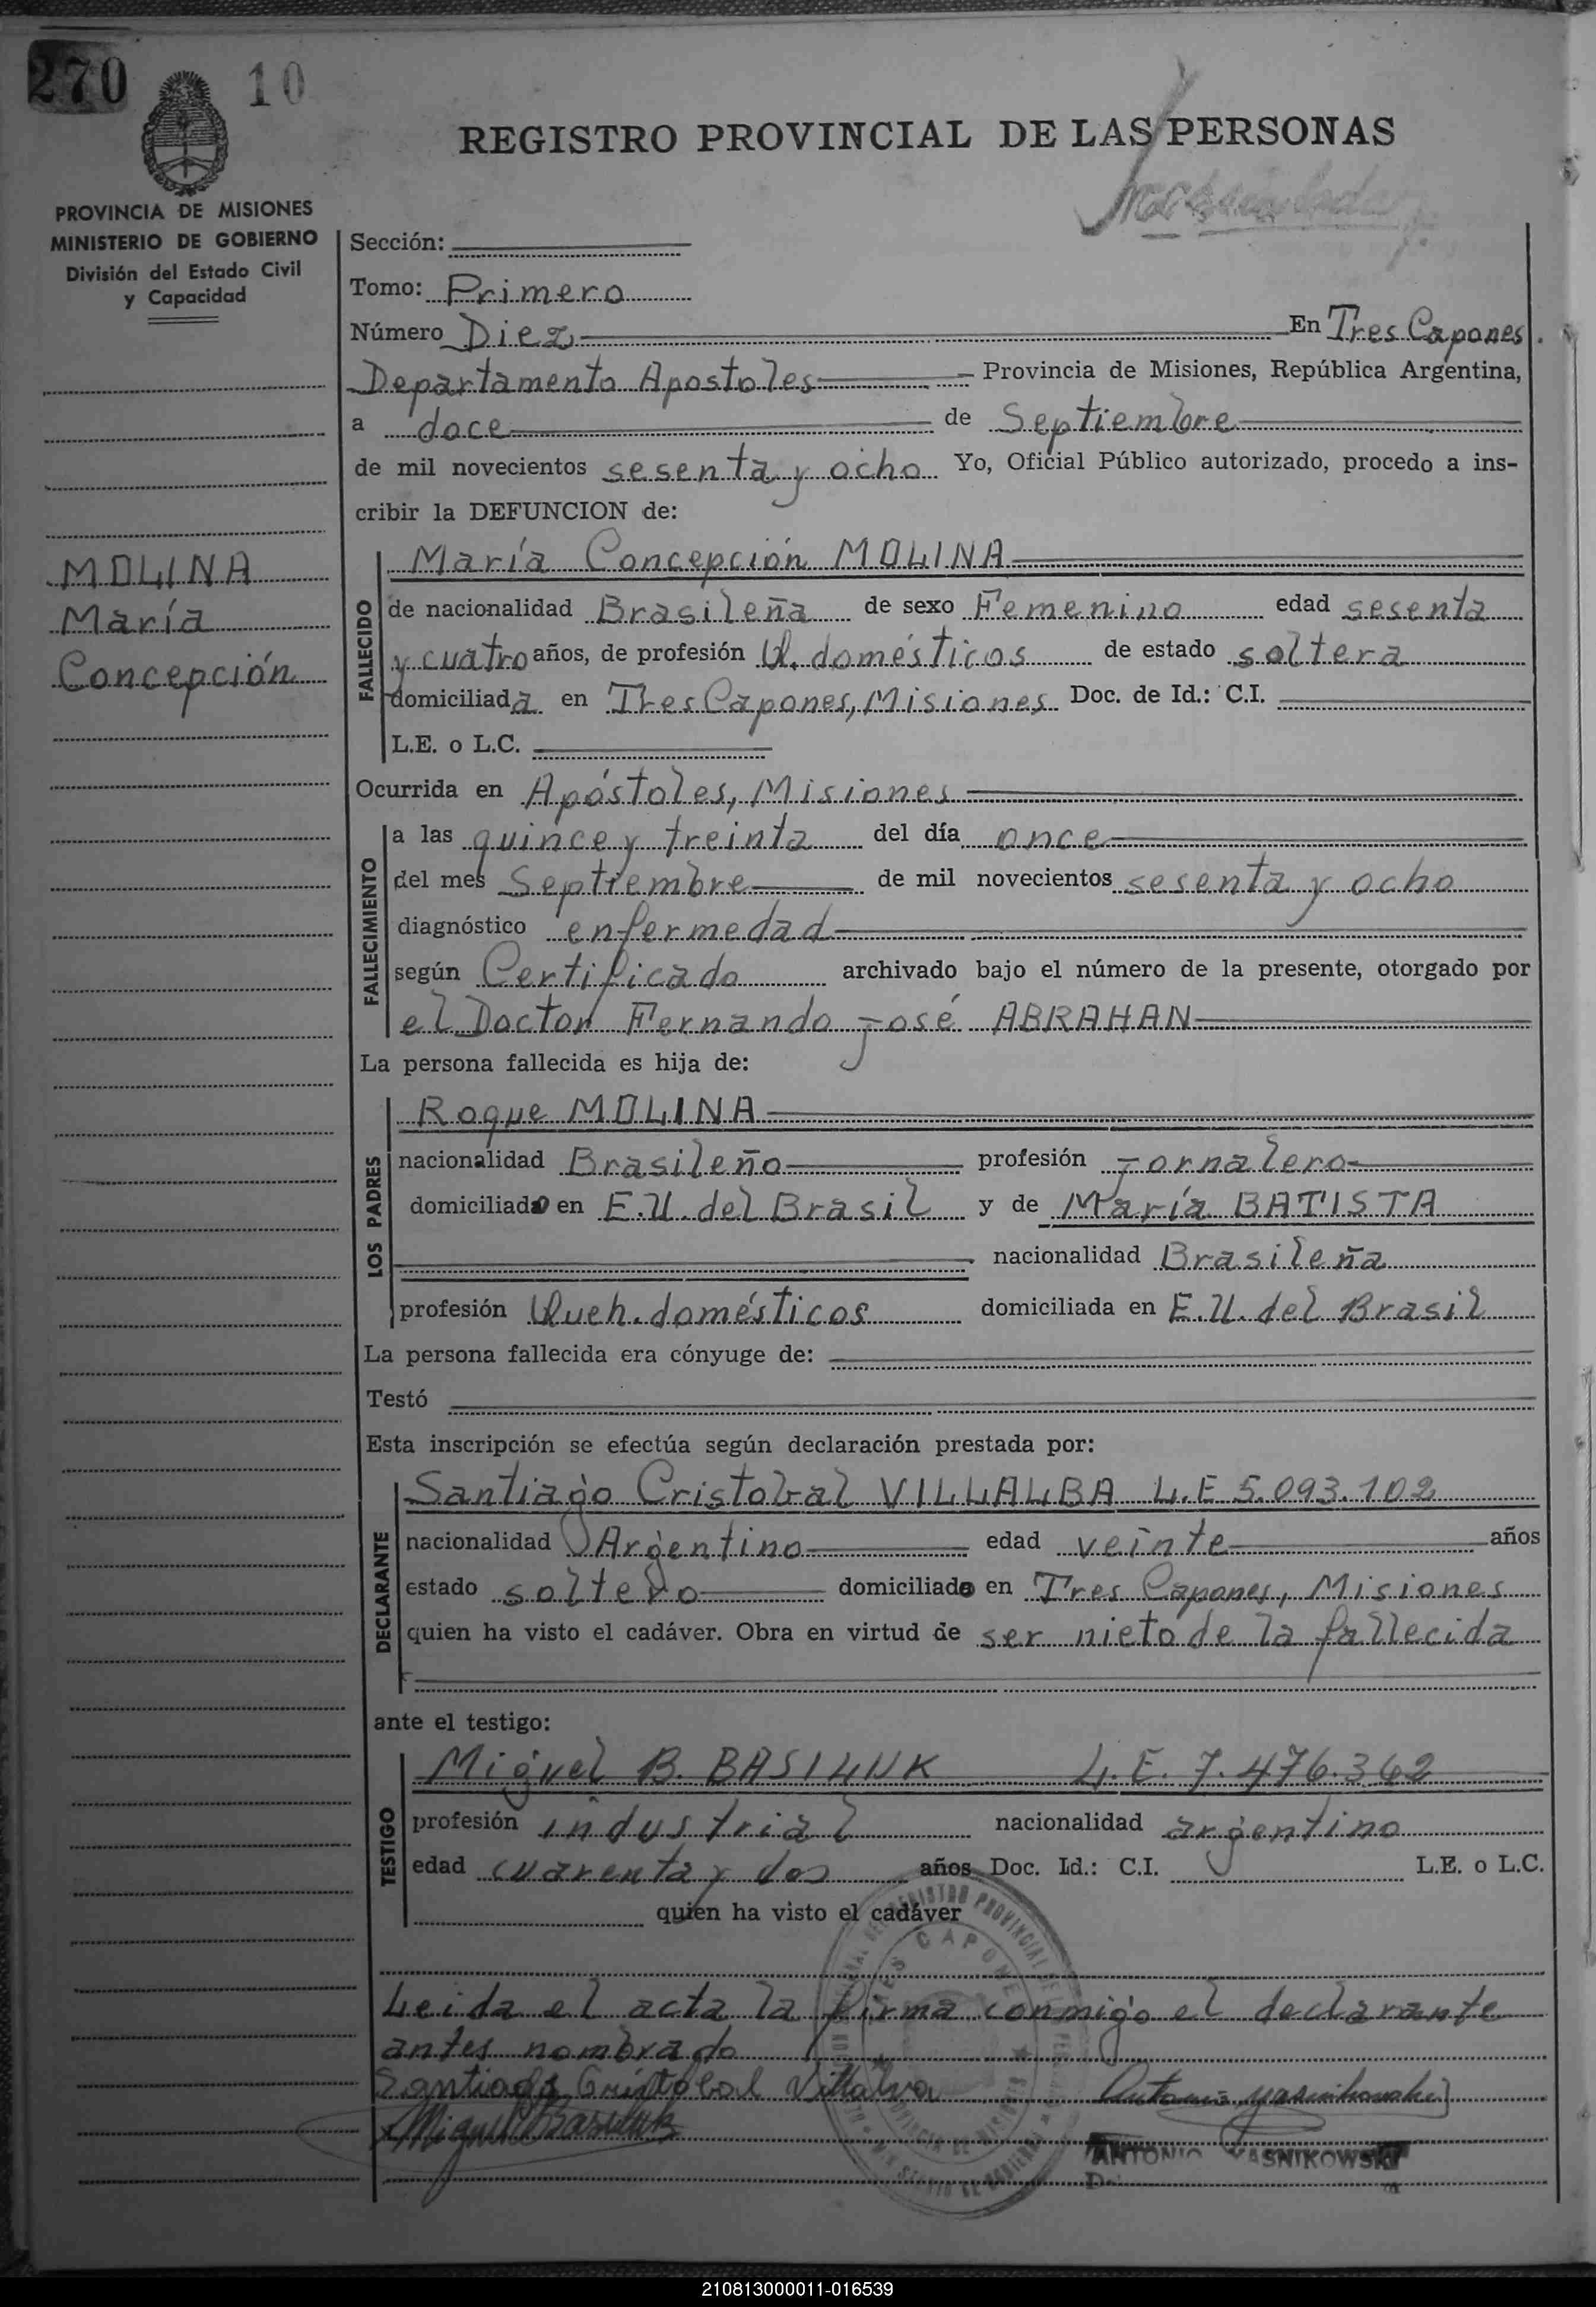 270 10
REGISTRO PROVINCIAL DE LAS PERSONAS
PROVINCIA DE MISIONES
MINISTERIO DE GOBIERNO
División del Estado Civil
y Capacidad
MOLINA
María
Concepción
Sección:
Tomo: Primero
Número Diez En Tres Capones.
Departamento Apostoles Provincia de Misiones, República Argentina,
a doce de Septiembre
de mil novecientos sesenta y ocho Yo, Oficial Público autorizado, procedo a ins-
cribir la DEFUNCION de:
FALLECIDO
María Concepción MOLINA
de nacionalidad Brasileña de sexo Femenino edad sesenta
y cuatro años, de profesión Q. domésticos de estado soltera
domiciliada en Tres Capones, Misiones Doc. de Id.: C.I.
L.E. o L.C.
Ocurrida en Apóstoles, Misiones
FALLECIMIENTO
a las quince y treinta del día once
del mes Septiembre de mil novecientos sesenta y ocho
diagnóstico enfermedad
según Certificado archivado bajo el número de la presente, otorgado por
el Doctor Fernando José ABRAHAN
La persona fallecida es hija de:
LOS PADRES
Roque MOLINA
nacionalidad Brasileño profesión Jornalero
domiciliado en E.U. del Brasil y de María BATISTA
nacionalidad Brasileña
profesión Queh. domésticos domiciliada en E.U. del Brasil
La persona fallecida era cónyuge de:
Testó
Esta inscripción se efectúa según declaración prestada por:
DECLARANTE
Santiago Cristobal VILLALBA L.E 5.093.102
nacionalidad Argentino edad veinte años
estado soltero domiciliado en Tres Capones, Misiones
quien ha visto el cadáver. Obra en virtud de ser nieto de la fallecida
ante el testigo:
TESTIGO
Miguel B. BASILUK L.E. 7.476.362
profesión industrial nacionalidad argentino
edad cuarenta y dos años Doc. Id.: C.I. L.E. o L.C.
quien ha visto el cadáver
Leida el acta la firma conmigo el declarante
antes nombrado
Santiago Cristobal Villalva
Miguel Basiluk
ANTONIO YASNIKOWSKI
210813000011-016539